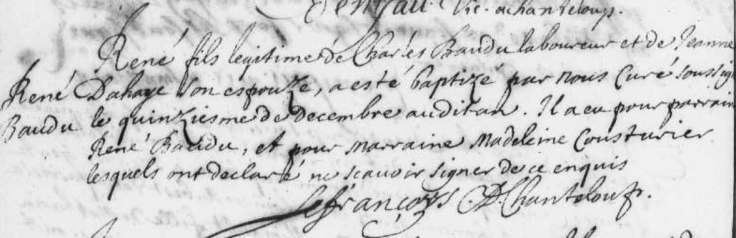 Vic. a chanteloup.
René fils legitime de Charles Baudu laboureur et de Jeanne
René Dahaye son espouze, a esté baptizé par nous Curé soussig
Baudu le quinziesme de decembre audit an. Il a eu pour parrain
René Baudu, et pour marraine Madeleine Cousturier
lesquels ont declaré ne scavoir signer de ce enquis
Lefrançoys C. D. Chanteloup.